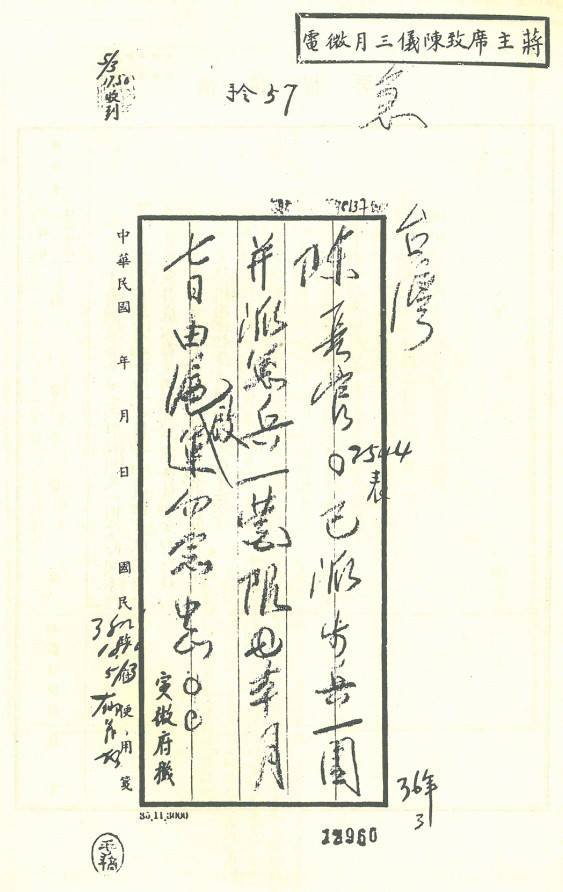 蔣主席致陳儀三月微電
急
手令57
5/3
17.50
收到
台灣
陳長官。已派步兵一團
2544
表
并派憲兵一營限本月
七日由滬啟運勿念中正。。
寅微府機
中華民國 年 月 日 國民
用箋
36年
3
35.11.3000
12960